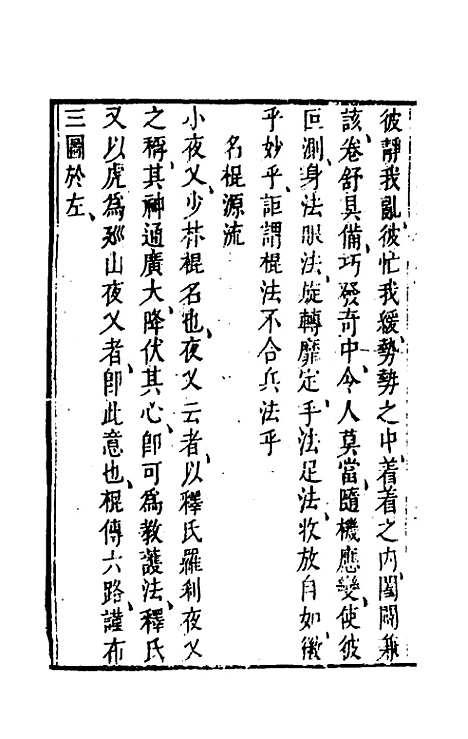 彼靜我亂彼忙我緩勢勢之中着着之内闔闢兼
該卷舒具備巧發奇中令人莫當隨機應變使彼
叵測身法眼法旋轉靡定手法足法收放自如微
乎妙乎詎謂棍法不合兵法乎
名棍源流
小夜叉少林棍名也夜叉云者以釋氏羅刹夜叉
之稱其神通廣大降伏其心即可為教護法釋氏
又以虎為廵山夜叉者即此意也棍傳六路謹布
三圖於左